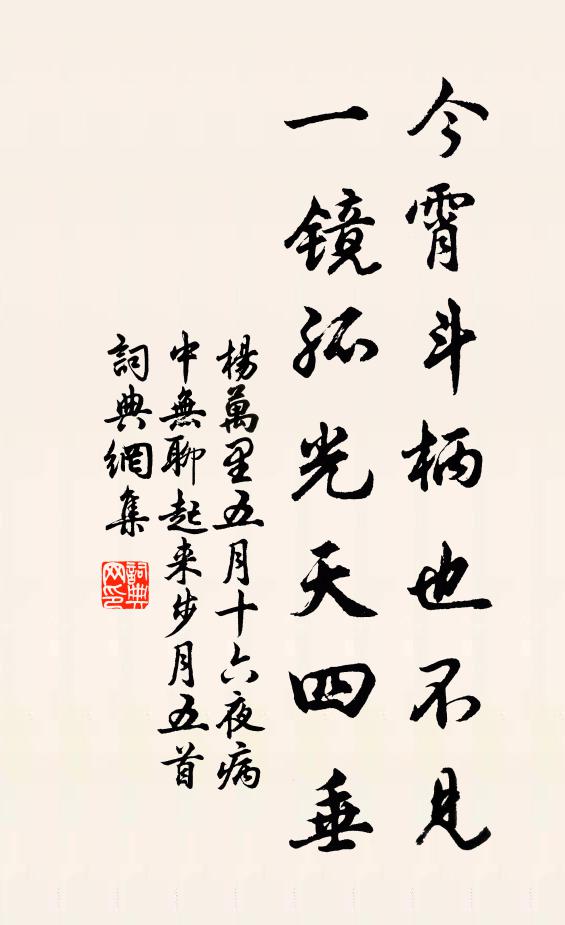 今霄斗柄也不見
一鏡孤光天四垂
楊萬里五月十六夜病
中無聊起来步月五首
詞典網集
詞典网印